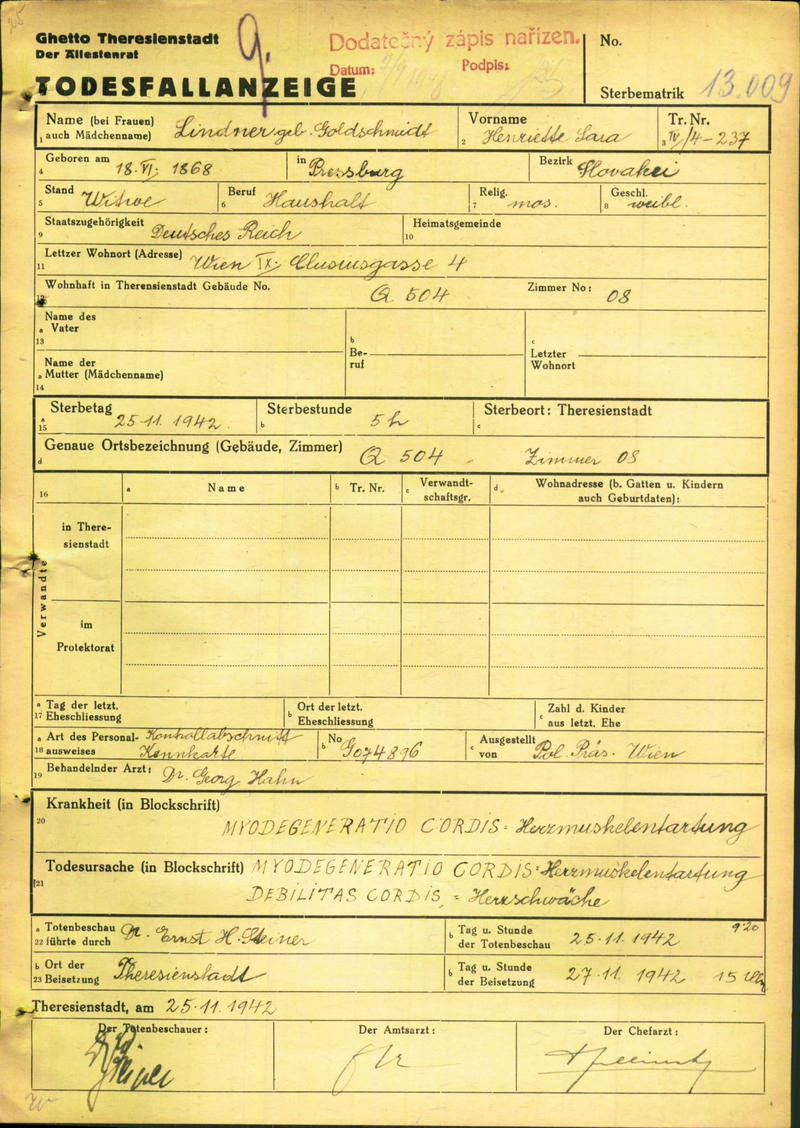 Ghetto Theresienstadt
Der Ältestenrat
TODESFALLANZEIGE
9.
Dodatečný zápis nařízen.
Datum: Podpis:
No.
Sterbematrik 13.009
Name (bei Frauen) auch Mädchenname) Lindner geb. Goldschmidt
1
Vorname Henriette Sara
2
Tr. Nr. IV/4-237
3
Geboren am 18.VI. 1868
4
in Pressburg
Bezirk Slovakei
Stand Witwe
5
Beruf Haushalt
6
Relig. mos.
7
Geschl. weibl.
8
Staatszugehörigkeit Deutsches Reich
9
Heimatsgemeinde
10
Lettzer Wohnort (Adresse) Wien IX. Clusiusgasse 4
11
Wohnhaft in Therensienstadt Gebäude No. Q 504 Zimmer No: 08
Name des
a Vater
13
Name der
a Mutter (Mädchenname)
14
b
Be-
ruf
c
Letzter
Wohnort
a Sterbetag 25.11.1942.
15
Sterbestunde 5 h
b
Sterbeort: Theresienstadt
c
Genaue Ortsbezeichnung (Gebäude, Zimmer) Q 504 - Zimmer 08
d
16 a Name b Tr. Nr. c Verwandt-
schaftsgr. d Wohnadresse (b. Gatten u. Kindern
auch Geburtdaten):
Verwandte
in There-
sienstadt
im
Protektorat
a Tag der letzt.
17 Eheschliessung
b Ort der letzt.
Eheschliessung
c Zahl d. Kinder
aus letzt. Ehe
a Art des Personal- Kontrollabschnitt
18 ausweises Kennkarte
b No G074896
c Ausgestellt
von Pol. Präs. Wien
19 Behandelnder Arzt: Dr. Georg Hahn
Krankheit (in Blockschrift)
20 MYODEGENERATIO CORDIS = Herzmuskelentartung
Todesursache (in Blockschrift) MYODEGENERATIO CORDIS = Herzmuskelentartung
21 DEBILITAS CORDIS, = Herzschwäche
a Totenbeschau
22 führte durch Dr. Ernst H. Steiner
b Tag u. Stunde
der Totenbeschau 25.11.1942 9'20
b Ort der
23 Beisetzung Theresienstadt
b Tag u. Stunde
der Beisetzung 27.11.1942 15 Uhr
Theresienstadt, am 25.11.1942
Der Totenbeschauer:
Der Amtsarzt:
Der Chefarzt: